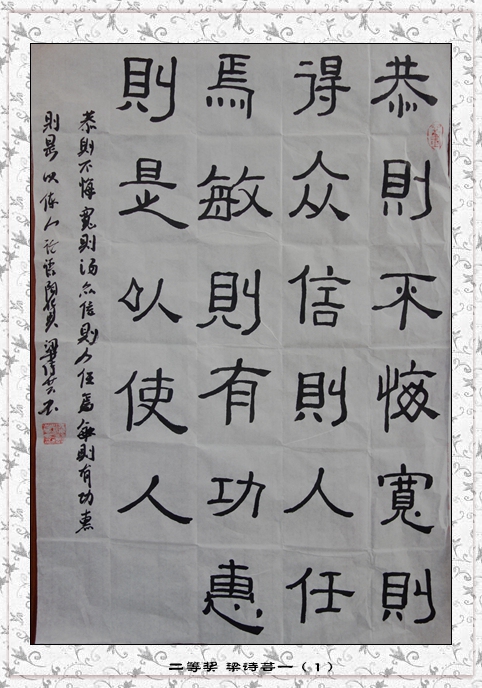 恭則不悔寬則
得众信則人任
焉敏則有功惠
則是以使人
恭則不悔寬則得众信則人任焉敏則有功惠
則是以使人论语阳货梁诗
二等奖 梁诗一（1）